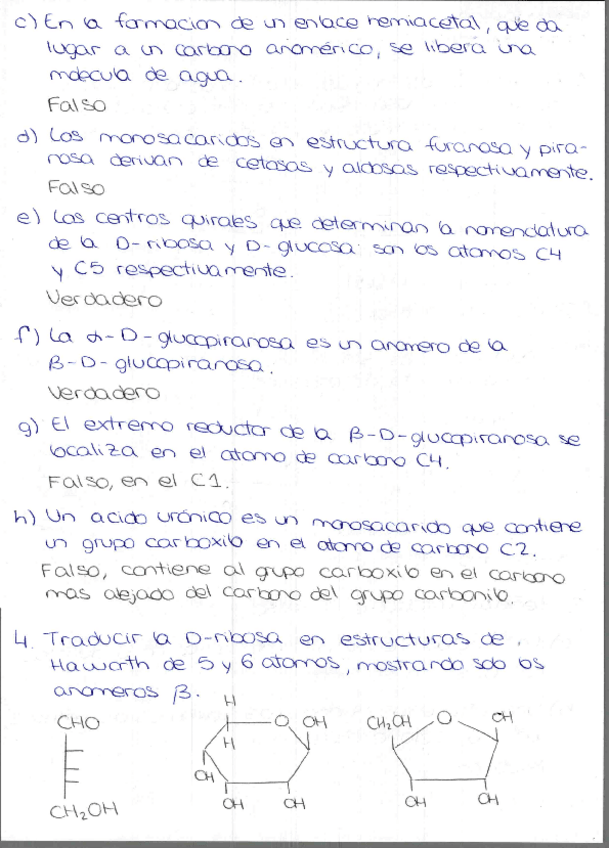 c) En la formacion de un enlace hemiacetal, que da
lugar a un carbono anomérico, se libera una
molecula de agua.
Falso
d) Los monosacaridos en estructura furanosa y pira-
nosa derivan de cetosas y aldosas respectivamente.
Falso
e) Los centros quirales que determinan la nomenclatura
de la D-ribosa y D-glucosa son los atomos C4
y C5 respectivamente.
Verdadero
f) La α-D-glucopiranosa es un anomero de la
β-D-glucopiranosa.
Verdadero
g) El extremo reductor de la β-D-glucopiranosa se
localiza en el atomo de carbono C4.
Falso, en el C1.
h) Un acido urónico es un monosacarido que contiene
un grupo carboxilo en el atomo de carbono C2.
Falso, contiene al grupo carboxilo en el carbono
mas alejado del carbono del grupo carbonilo.
4. Traducir la D-ribosa en estructuras de
Haworth de 5 y 6 atomos, mostrando solo los
anomeros β.
H
CHO O OH CH₂OH O OH
H
OH
OH OH OH OH
CH₂OH